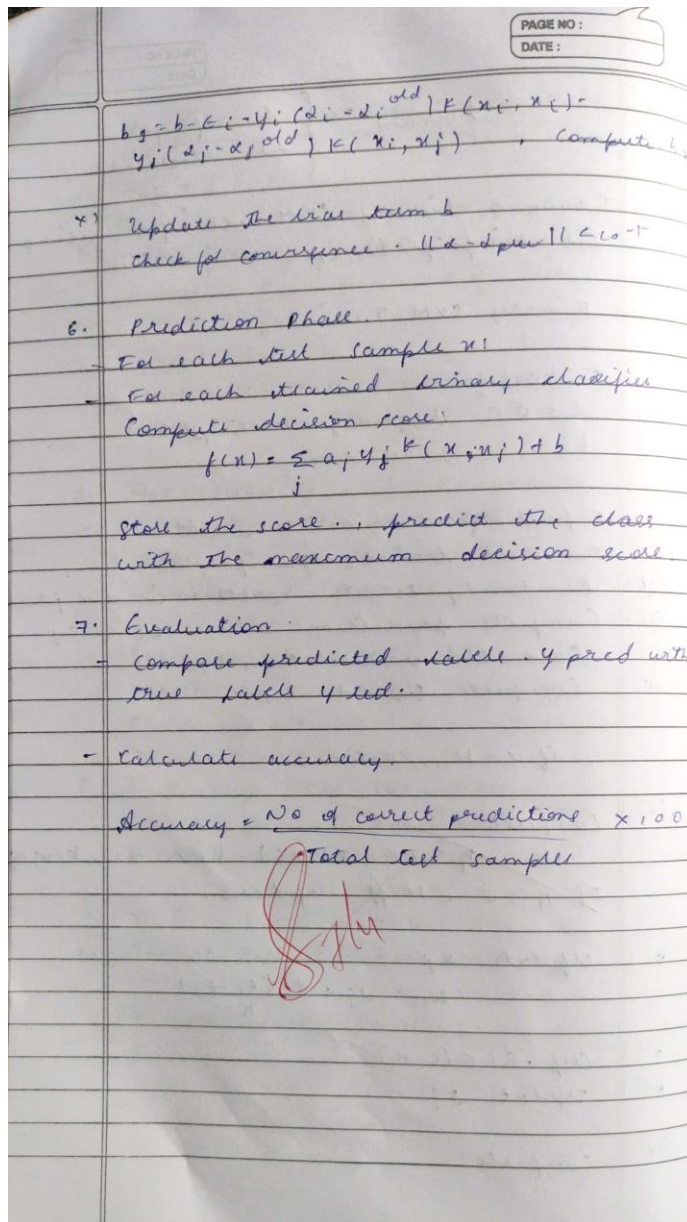 PAGE NO :
DATE :
b1 = b - Ei - yi (αi - αi old) K(xi, xi) -
yj (αj - αj old) K(xi, xj) , Compute b
x) Update the bias term b
check for convergence. ||α - αprev|| < 10-5
6. Prediction Phase.
- For each test sample x:
- For each trained binary classifier
Compute decision score:
f(x) = Σ aj yj K(x, xj) + b
j
Store the score., predict the class
with the maximum decision score.
7. Evaluation
- Compare predicted labels. y pred with
true labels y test.
- Calculate accuracy.
Accuracy = No of correct predictions × 100
Total test samples